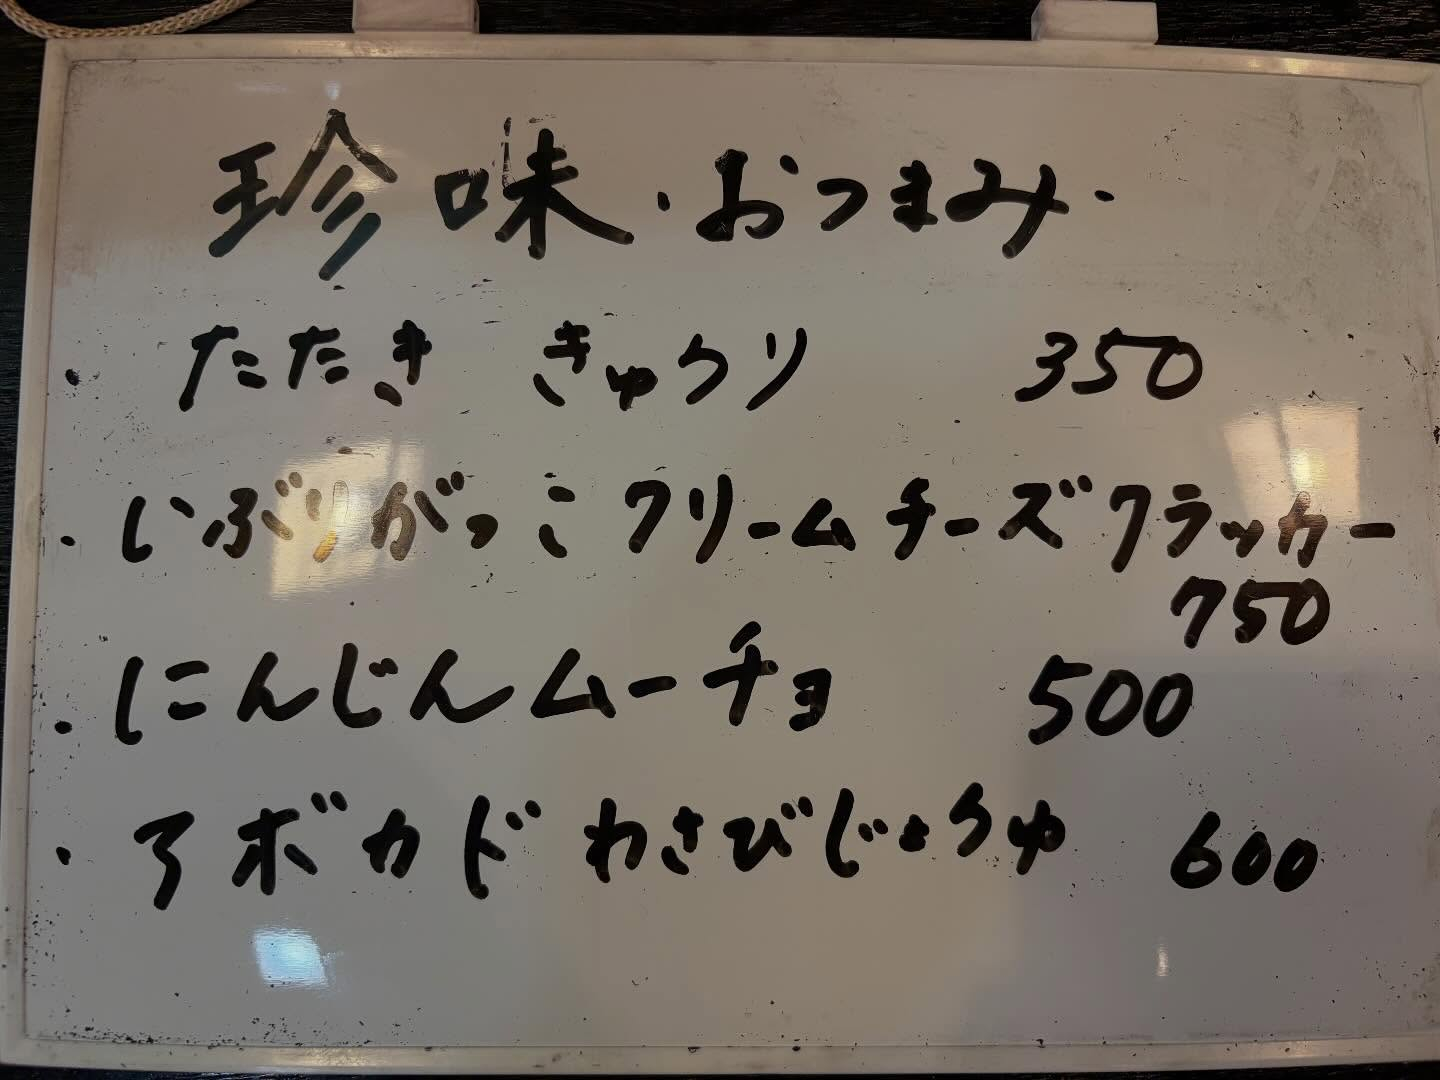 珍味・おつまみ・
・たたき きゅうり 350
・いぶりがっこクリームチーズクラッカー
750
・にんじんムーチョ 500
・アボカドわさびじょうゆ 600